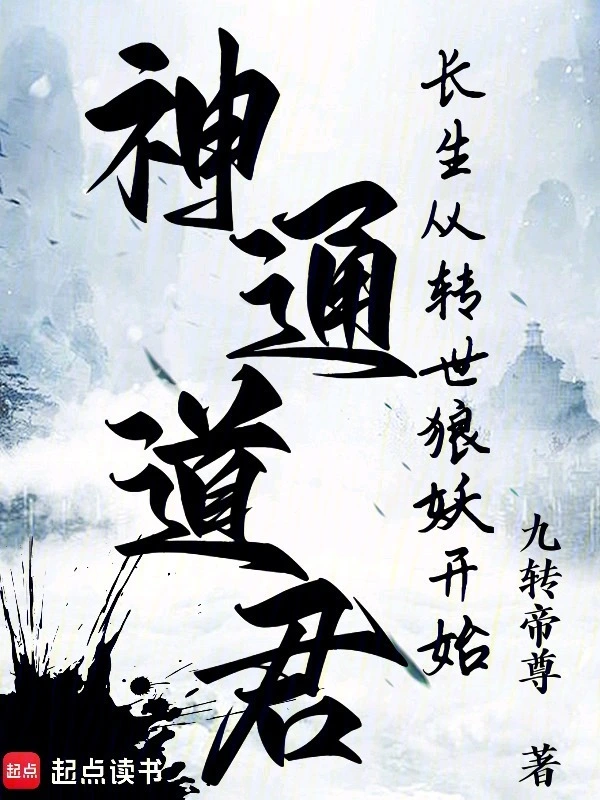 神通道君
长生从转世狼妖开始
九转帝尊 著
起点 起点读书